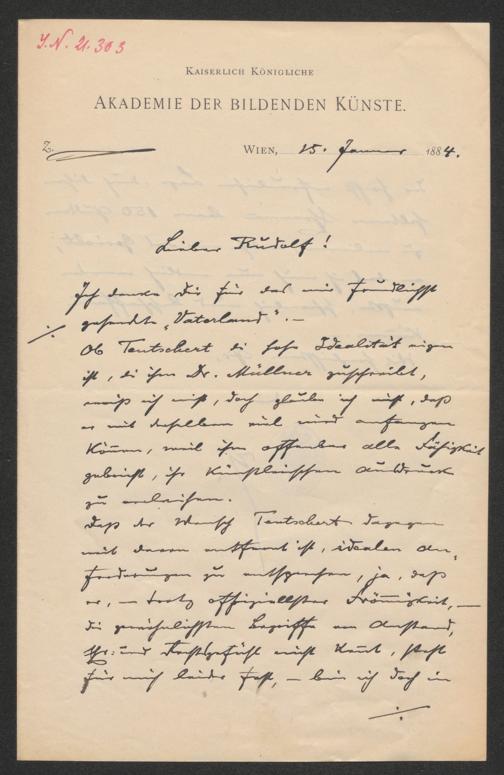 J.N. 21.303
KAISERLICH KÖNIGLICHE
AKADEMIE DER BILDENDEN KÜNSTE.
Z.
WIEN, 15. Januar 1884.
Lieber Rudolf!
Ich danke Dir für das mir freundlichst
gesendte „Vaterland“. —
Ob Teutschert die hohe Idealität eigen
ist, die ihm Dr. Müllner zuschreibt,
weiß ich nicht, doch glaube ich nicht, daß
er mit derselben viel wird anfangen
können, weil ihm offenbar alle Fähigkeit
gebricht, ihr künstlerischen Ausdruck
zu verleihen.
Daß der Mensch Teutschert dagegen
weit davon entfernt ist, idealen An-
forderungen zu entsprechen, ja, daß
er, — trotz offiziellster Frömmigkeit, —
die gewöhnlichsten Begriffe von Anstand,
Ehr- und Rechtsgefühl nicht kennt, steht
für mich leider fest, — bin ich doch in